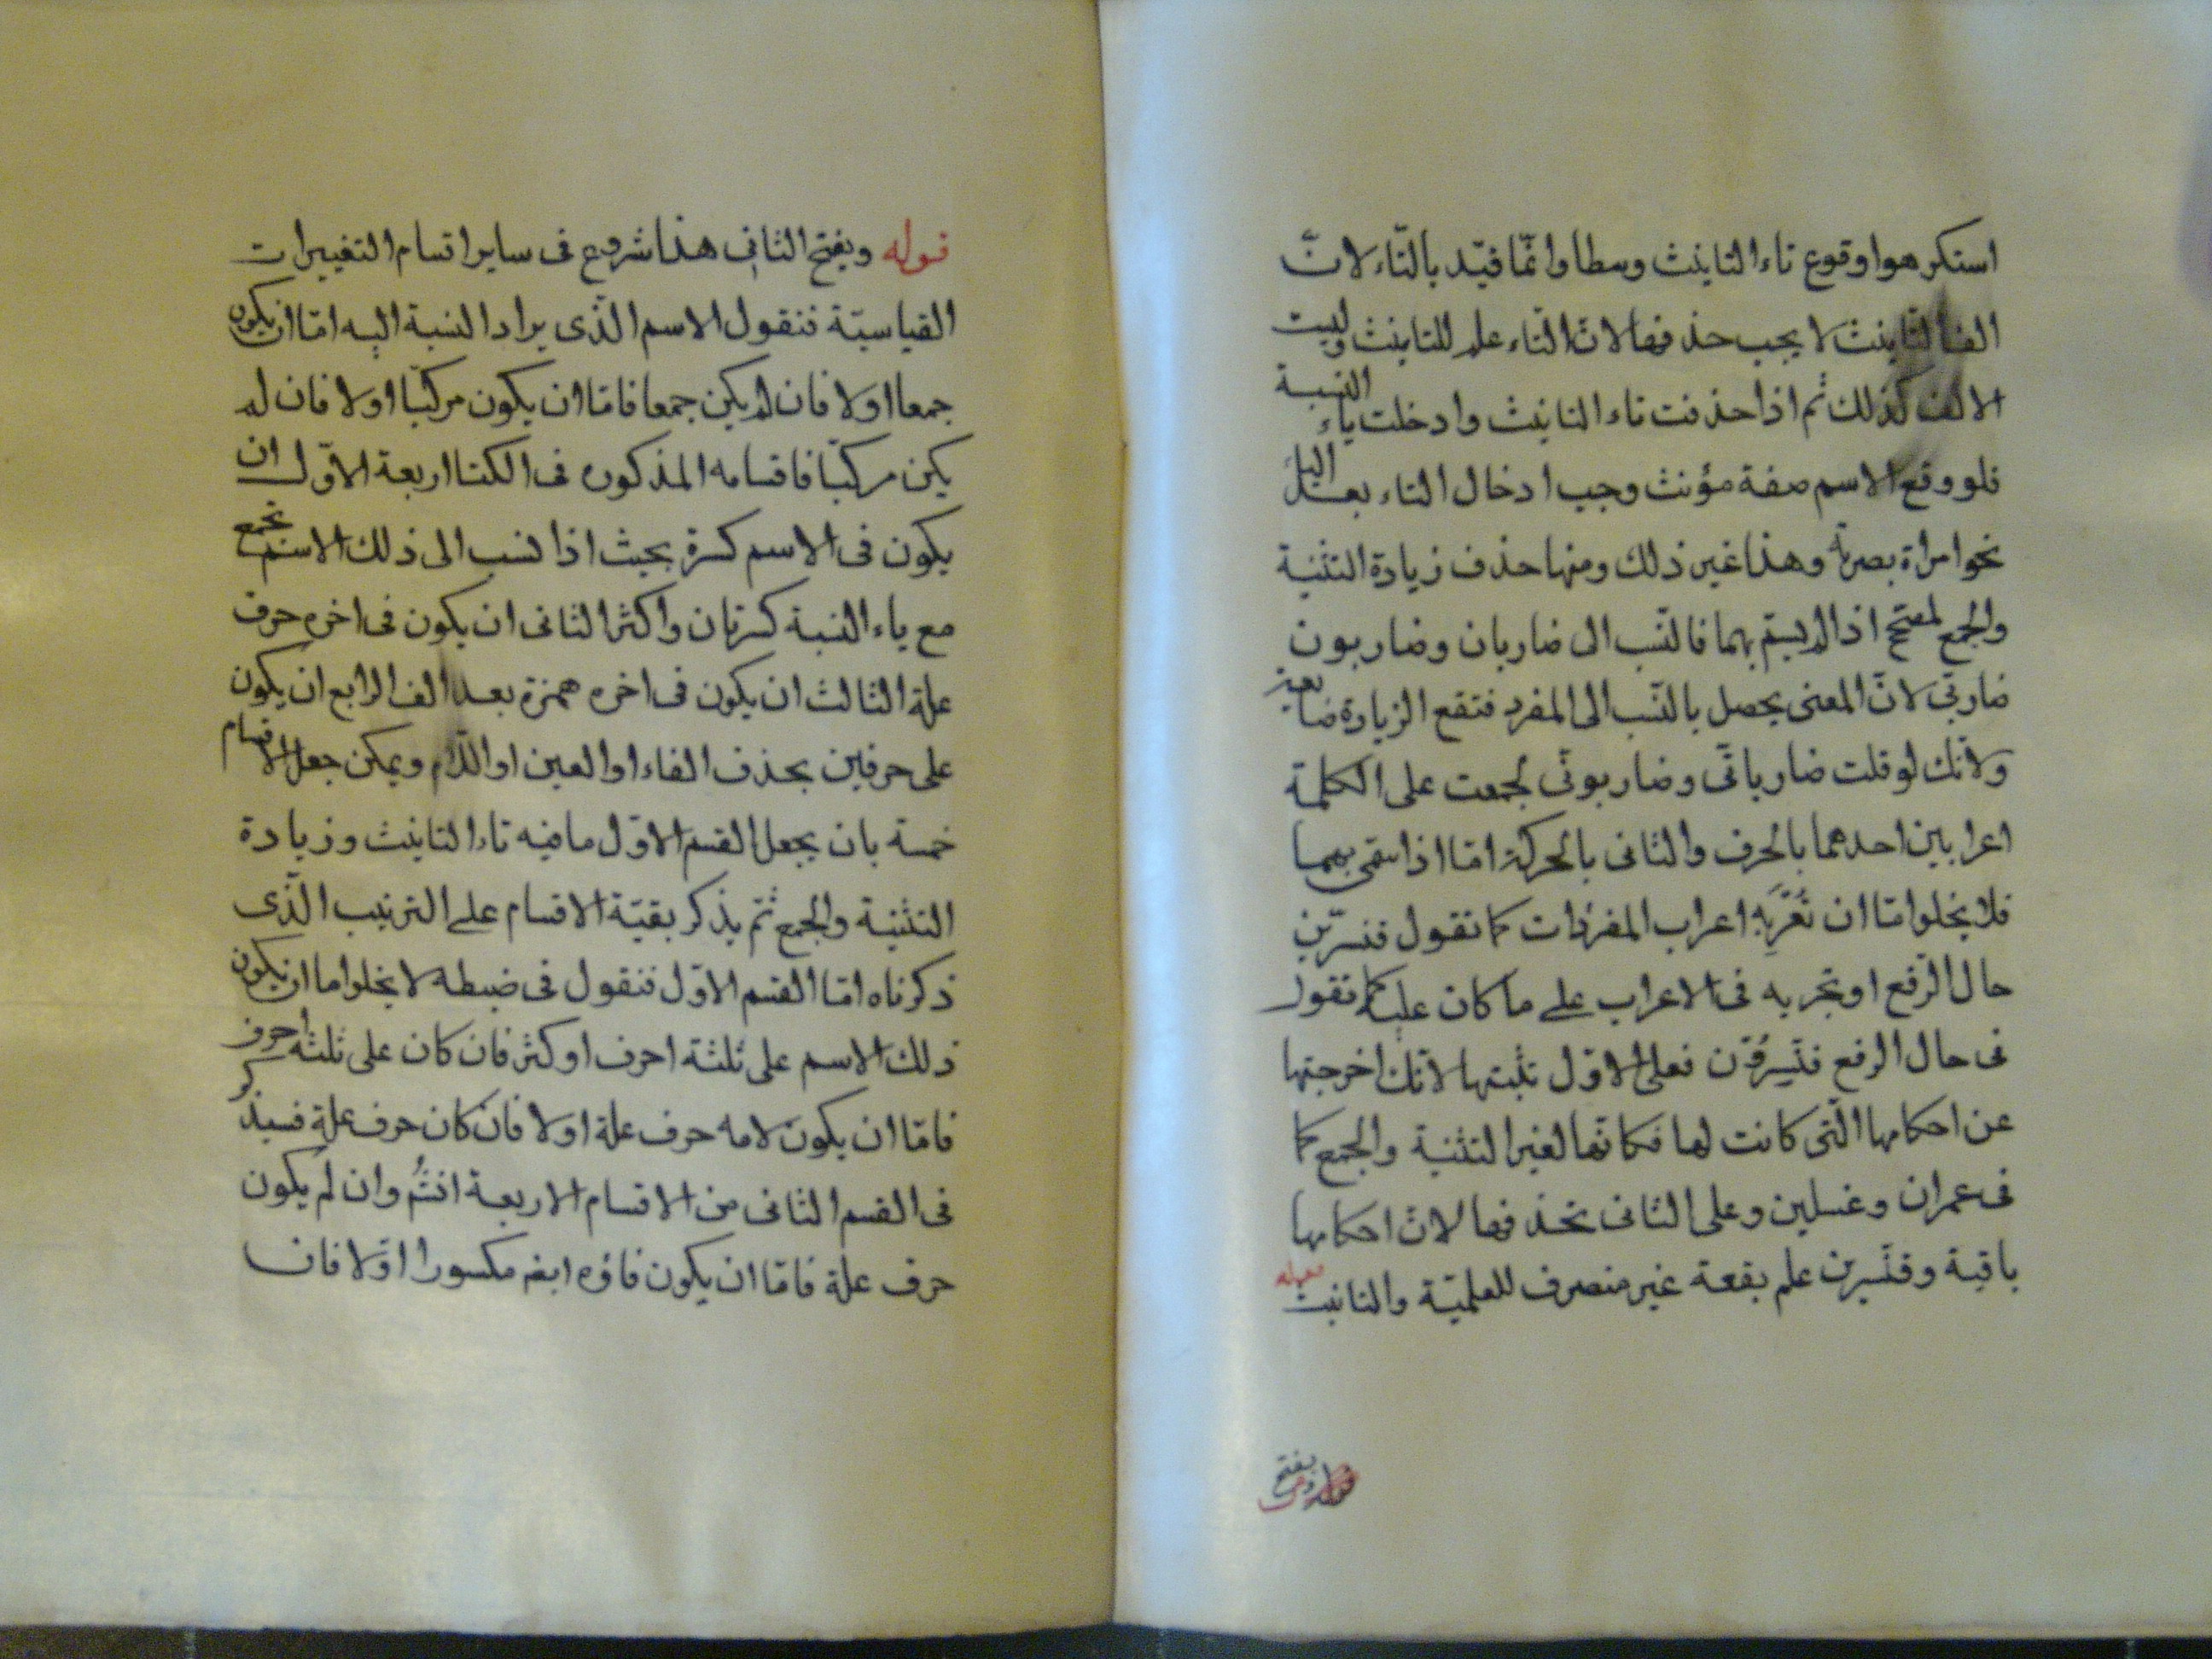 استكرهوا وقوع تاء التانيث وسطا وانّما قيّد بالتّاء لانّ
الف التّانيث لا يجب حذفها لانّ التّاء علم للتانيث وليست
الالف كذلك ثم اذا حذفت تاء التانيث وادخلت ياء النسبة
فلو وقع الاسم صفة مؤنث وجب ادخال التاء بعد الياء
نحو امراة بصريّة وهذا غير ذلك ومنها حذف زيادة التثنية
والجمع اذا لم يسمّ بهما فالنّسب الى ضاربان وضاربون
ضاربّى لانّ المعنى يحصل بالنّسب الى المفرد فتقع الزيادة ضايعة
ولانّك لو قلت ضاربانّى وضاربونّى لجمعت على الكلمة
اعرابين احدهما بالحرف والثانى بالحركة امّا اذا سمّى بهما
فلا يخلو امّا ان تُعْرَبَ اعراب المفردات كما تقول قنسرّين
حال الرّفع او تجريه فى الاعراب على ما كان عليه كما تقول
فى حال الرفع قنّسرُوّن فعلى الاوّل تثبتها لانّك اخرجتها
عن احكامها الّتى كانت لها فكانّها لغير التثنية والجمع كما
فى عمران وغسلين وعلى الثانى تحذفها لانّ احكامها
باقية وقنّسرين علم بقعة غير منصرف للعلميّة والتانيث
قوله ويفتح
قوله ويفتح الثانى هذا شروع فى ساير اقسام التغييرات
القياسيّة فنقول الاسم الّذى يراد النسبة اليه امّا ان يكون
جمعا اولا فان لم يكن جمعا فامّا ان يكون مركبّا اولا فان لم
يكن مركبّا فاقسامه المذكوره فى الكتا اربعة الاوّل ان
يكون فى الاسم كسرة بحيث اذا نسب الى ذلك الاسم تجمع
مع ياء النسبة كسرتان واكثر الثانى ان يكون فى اخره حرف
علة الثالث ان يكون فى اخره همزة بعد الف الرابع ان يكون
على حرفين بحذف الفاء او العين او اللّام ويمكن جعل الاقسام
خمسة بان يجعل القسم الاوّل ما فيه تاء التانيث وزيادة
التثنية والجمع ثمّ يذكر بقيّة الاقسام على الترتيب الّذى
ذكرناه امّا القسم الاوّل فنقول فى ضبطه لا يخلو اما ان يكون
ذلك الاسم على ثلثة احرف او كثر فان كان على ثلثه احرف
فامّا ان يكون لامه حرف علة اولا فان كان حرف علة فسيذكر
فى القسم الثانى من الاقسام الاربعة انتُم وان لم يكون
حرف علة فامّا ان يكون فاؤه ايضم مكسورا اوّلا فان